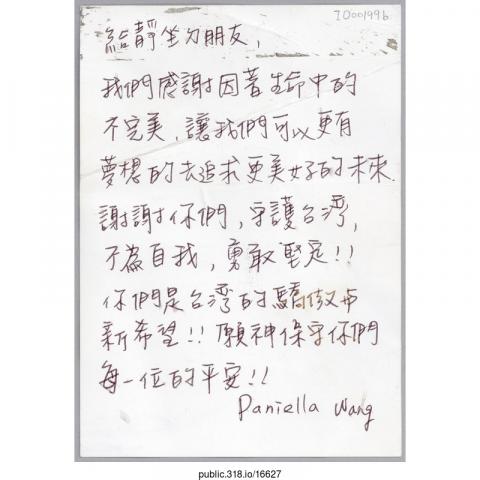 I0001996
給靜坐ㄉ朋友,
我們感謝因著生命中的
不完美,讓我們可以更有
夢想的去追求更美好的未來.
謝謝你們,守護台灣,
不為自我,勇敢堅定!!
你們是台灣的驕傲和
新希望!! 願神保守你們
每一位的平安!!
Daniella Wang
public.318.io/16627